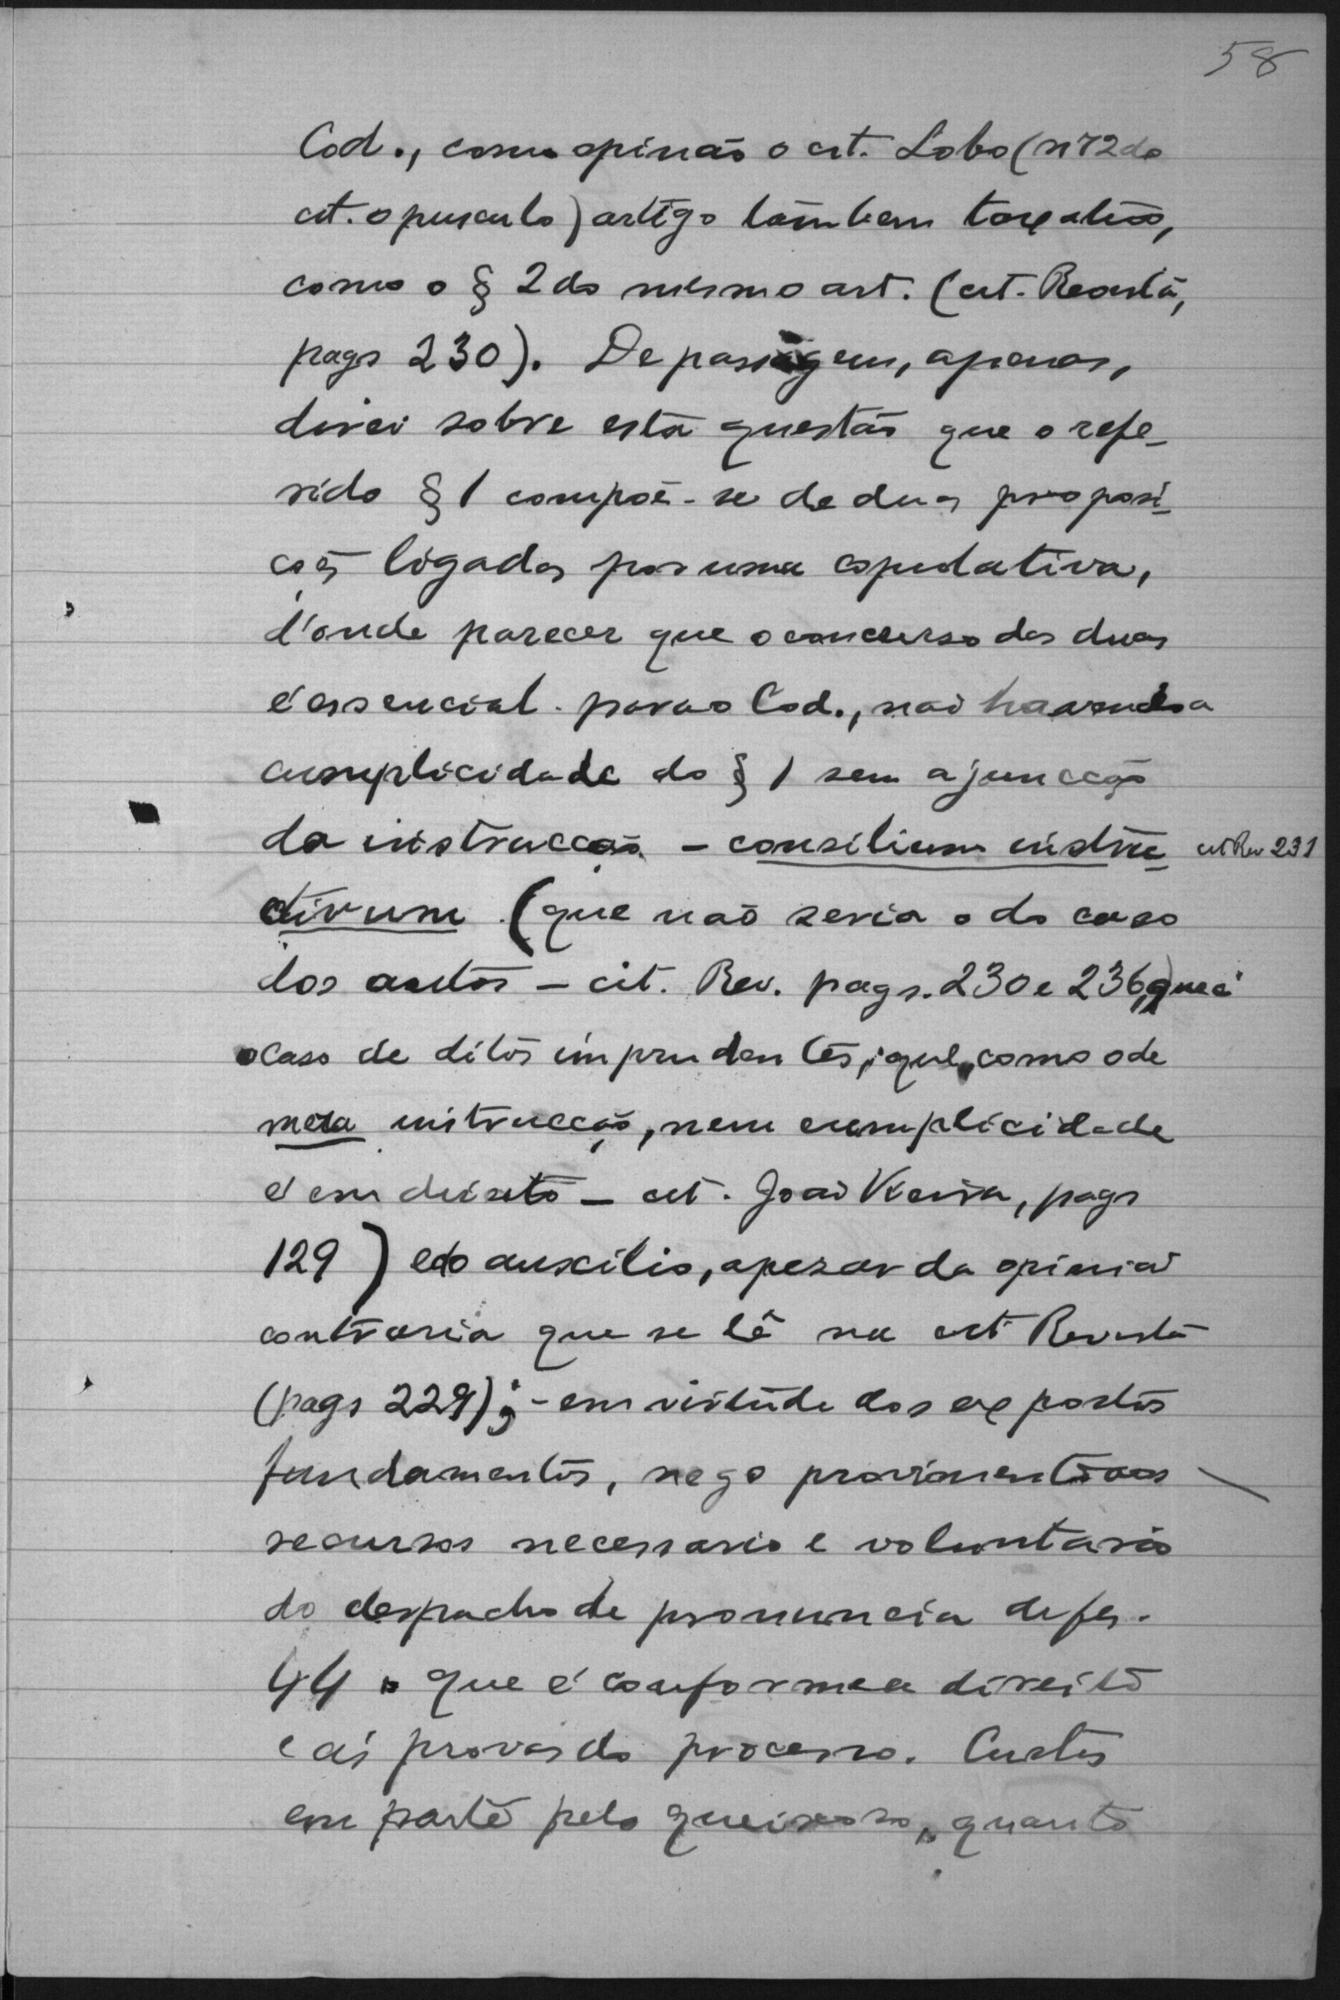 58
Cod., como opinão o cit. Lobo (nº 72 do
cit. opusculo) artigo tambem taxativo,
como o § 2 do mesmo art. (cit. Revista,
pags 230). De passagem, apenas,
direi sobre esta questão que o refe-
rido § 1 compõe-se de duas proposi-
ções ligadas por uma copulativa,
d'onde parecer que o concurso das duas
é essencial para o Cod., não havendo a
cumplicidade do § 1 sem a juncção
da instrucção – consilium instru- cit Rev 231
ctivum (que não seria o do caso
dos autos – cit. Rev. pags. 230 e 236, que é
o caso de ditos imprudentes, que, como o de
mera instrucção, nem cumplicidade
é em direito – cit. João Vieira, pags
129) e do auxilio, apezar da opinião
contraria que se lê na cit Revista
(pags 229); – em virtude dos expostos
fundamentos, nego provimento aos
recursos necessario e voluntario
do despacho de pronuncia de fs.
44, que é conforme a direito
e ás provas do processo. Custas
em parte pelo queixoso, quanto